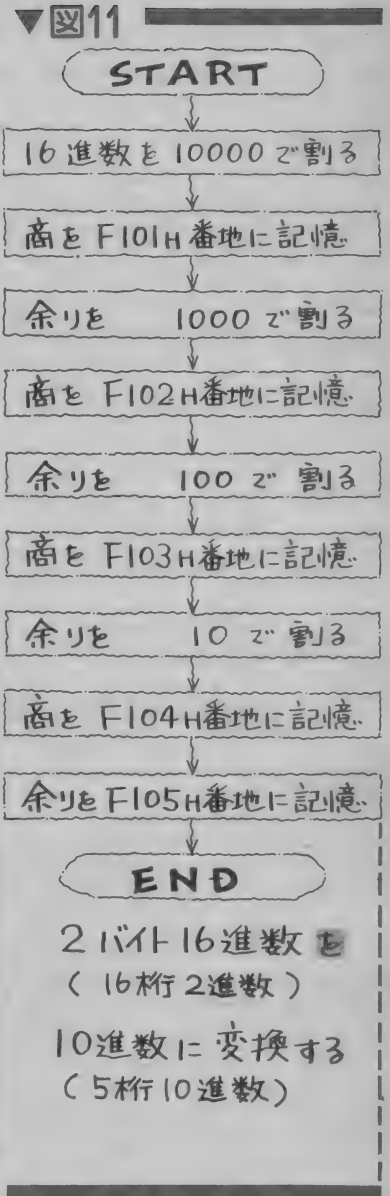 ▼図11
START
16進数を10000で割る
商をF101H番地に記憶
余りを 1000で割る
商をF102H番地に記憶
余りを 100で割る
商をF103H番地に記憶
余りを 10で割る
商をF104H番地に記憶
余りをF105H番地に記憶
END
2バイト16進数を
(16桁2進数)
10進数に変換する
(5桁10進数)